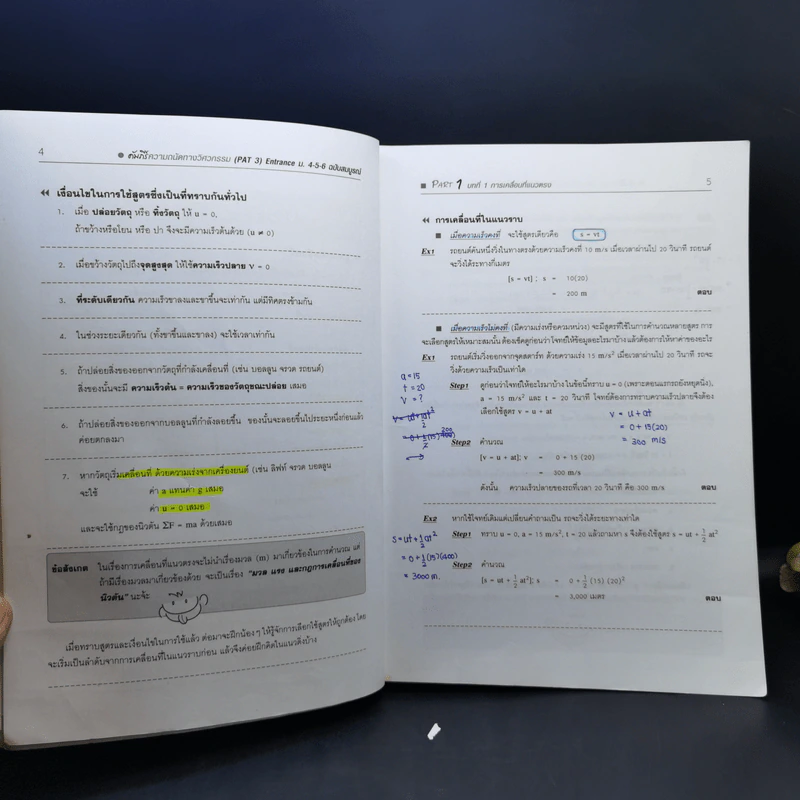 4
● คัมภีร์ความถนัดทางวิศวกรรม (PAT 3) Entrance ม. 4-5-6 ฉบับสมบูรณ์
เงื่อนไขในการใช้สูตรซึ่งเป็นที่ทราบกันทั่วไป
1. เมื่อ ปล่อยวัตถุ หรือ ทิ้งวัตถุ ให้ u = 0,
ถ้าขว้างหรือโยน หรือ ปา จึงจะมีความเร็วต้นด้วย (u ≠ 0)
2. เมื่อขว้างวัตถุไปถึงจุดสูงสุด ให้ใช้ความเร็วปลาย v = 0
3. ที่ระดับเดียวกัน ความเร็วขาลงและขาขึ้นจะเท่ากัน แต่มีทิศตรงข้ามกัน
4. ในช่วงระยะเดียวกัน (ทั้งขาขึ้นและขาลง) จะใช้เวลาเท่ากัน
5. ถ้าปล่อยสิ่งของออกจากวัตถุที่กำลังเคลื่อนที่ (เช่น บอลลูน จรวด รถยนต์)
สิ่งของนั้นจะมี ความเร็วต้น = ความเร็วของวัตถุขณะปล่อย เสมอ
6. ถ้าปล่อยสิ่งของออกจากบอลลูนที่กำลังลอยขึ้น ของนั้นจะลอยขึ้นไประยะหนึ่งก่อนแล้ว
ค่อยตกลงมา
7. หากวัตถุเริ่มเคลื่อนที่ ด้วยความเร่งจากเครื่องยนต์ (เช่น ลิฟท์ จรวด บอลลูน
จะใช้ ค่า a แทนค่า g เสมอ
ค่า u = 0 เสมอ
และจะใช้กฎของนิวตัน ΣF = ma ด้วยเสมอ
ข้อสังเกต ในเรื่องการเคลื่อนที่แนวตรงจะไม่นำเรื่องมวล (m) มาเกี่ยวข้องในการคำนวณ แต่
ถ้ามีเรื่องมวลมาเกี่ยวข้องด้วย จะเป็นเรื่อง "มวล แรง และกฎการเคลื่อนที่ของ
นิวตัน" นะจ๊ะ
เมื่อทราบสูตรและเงื่อนไขในการใช้แล้ว ต่อมาจะฝึกน้องๆ ให้รู้จักการเลือกใช้สูตรให้ถูกต้อง โดย
จะเริ่มเป็นลำดับจากการเคลื่อนที่ในแนวราบก่อน แล้วจึงค่อยฝึกคิดในแนวดิ่งบ้าง
■ PART 1 บทที่ 1 การเคลื่อนที่แนวตรง
5
การเคลื่อนที่ในแนวราบ
■ เมื่อความเร็วคงที่ จะใช้สูตรเดียวคือ s = vt
Ex1 รถยนต์คันหนึ่งวิ่งในทางตรงด้วยความเร็วคงที่ 10 m/s เมื่อเวลาผ่านไป 20 วินาที รถยนต์
จะวิ่งได้ระยะทางกี่เมตร
[s = vt] ; s = 10(20)
= 200 m ตอบ
■ เมื่อความเร็วไม่คงที่ (มีความเร่งหรือความหน่วง) จะมีสูตรที่ใช้ในการคำนวณหลายสูตร การ
จะเลือกสูตรให้เหมาะสมนั้น ต้องเช็คดูก่อนว่าโจทย์ให้ข้อมูลอะไรมาบ้าง แล้วต้องการให้หาค่าของอะไร
Ex1 รถยนต์เริ่มวิ่งออกจากจุดสตาร์ท ด้วยความเร่ง 15 m/s² เมื่อเวลาผ่านไป 20 วินาที รถจะ
วิ่งด้วยความเร็วเป็นเท่าใด
a = 15
t = 20
v = ?
Step1 ดูก่อนว่าโจทย์ให้อะไรมาบ้าง ในข้อนี้ทราบ u = 0 (เพราะตอนแรกรถยังหยุดนิ่ง),
a = 15 m/s² และ t = 20 วินาที โจทย์ต้องการทราบความเร็วปลายจึงต้อง
เลือกใช้สูตร v = u + at
v = u + at
= 0 + 15(20)
= 300 m/s
Step2 คำนวณ
[v = u + at]; v = 0 + 15 (20)
= 300 m/s
ดังนั้น ความเร็วปลายของรถที่เวลา 20 วินาที คือ 300 m/s ตอบ
Ex2 หากใช้โจทย์เดิมแต่เปลี่ยนคำถามเป็น รถจะวิ่งได้ระยะทางเท่าใด
Step1 ทราบ u = 0, a = 15 m/s², t = 20 แล้วถามหา s จึงต้องใช้สูตร s = ut + ½ at²
s = ut + ½ at²
= 0 + ½ (15)(400)
= 3000 m.
Step2 คำนวณ
[s = ut + ½ at²]; s = 0 + ½ (15) (20)²
= 3,000 เมตร ตอบ